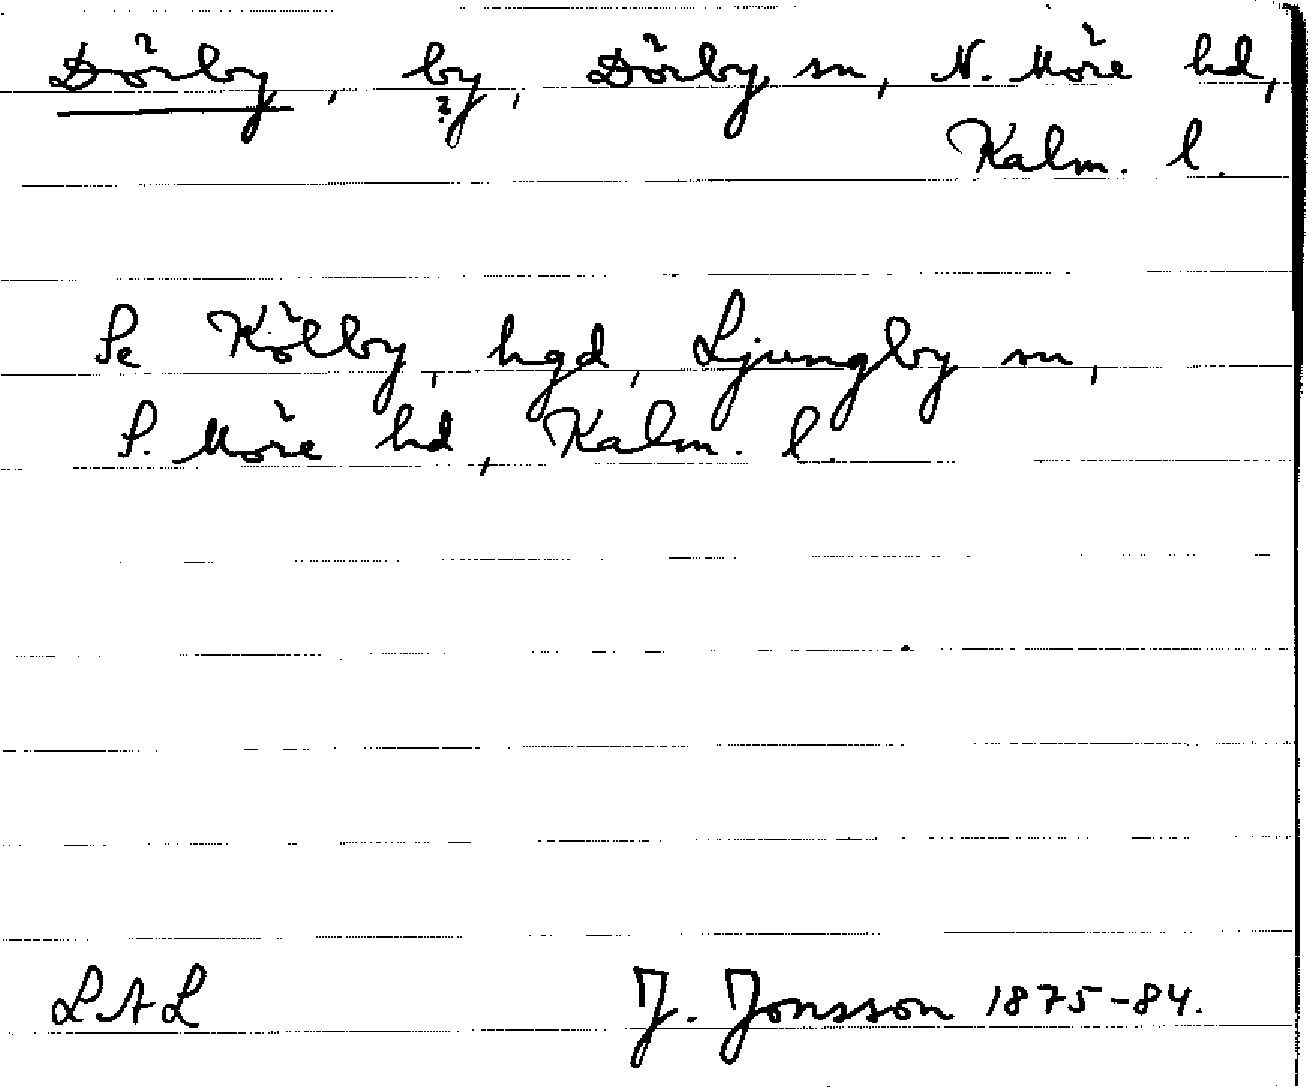 Dörby, by, Dörby sn, N. Möre hd,
?
Kalm. l.
Se Kölby, hgd, Ljungby sn,
S. Möre hd, Kalm. l.
LAL J. Jonsson 1875-84.